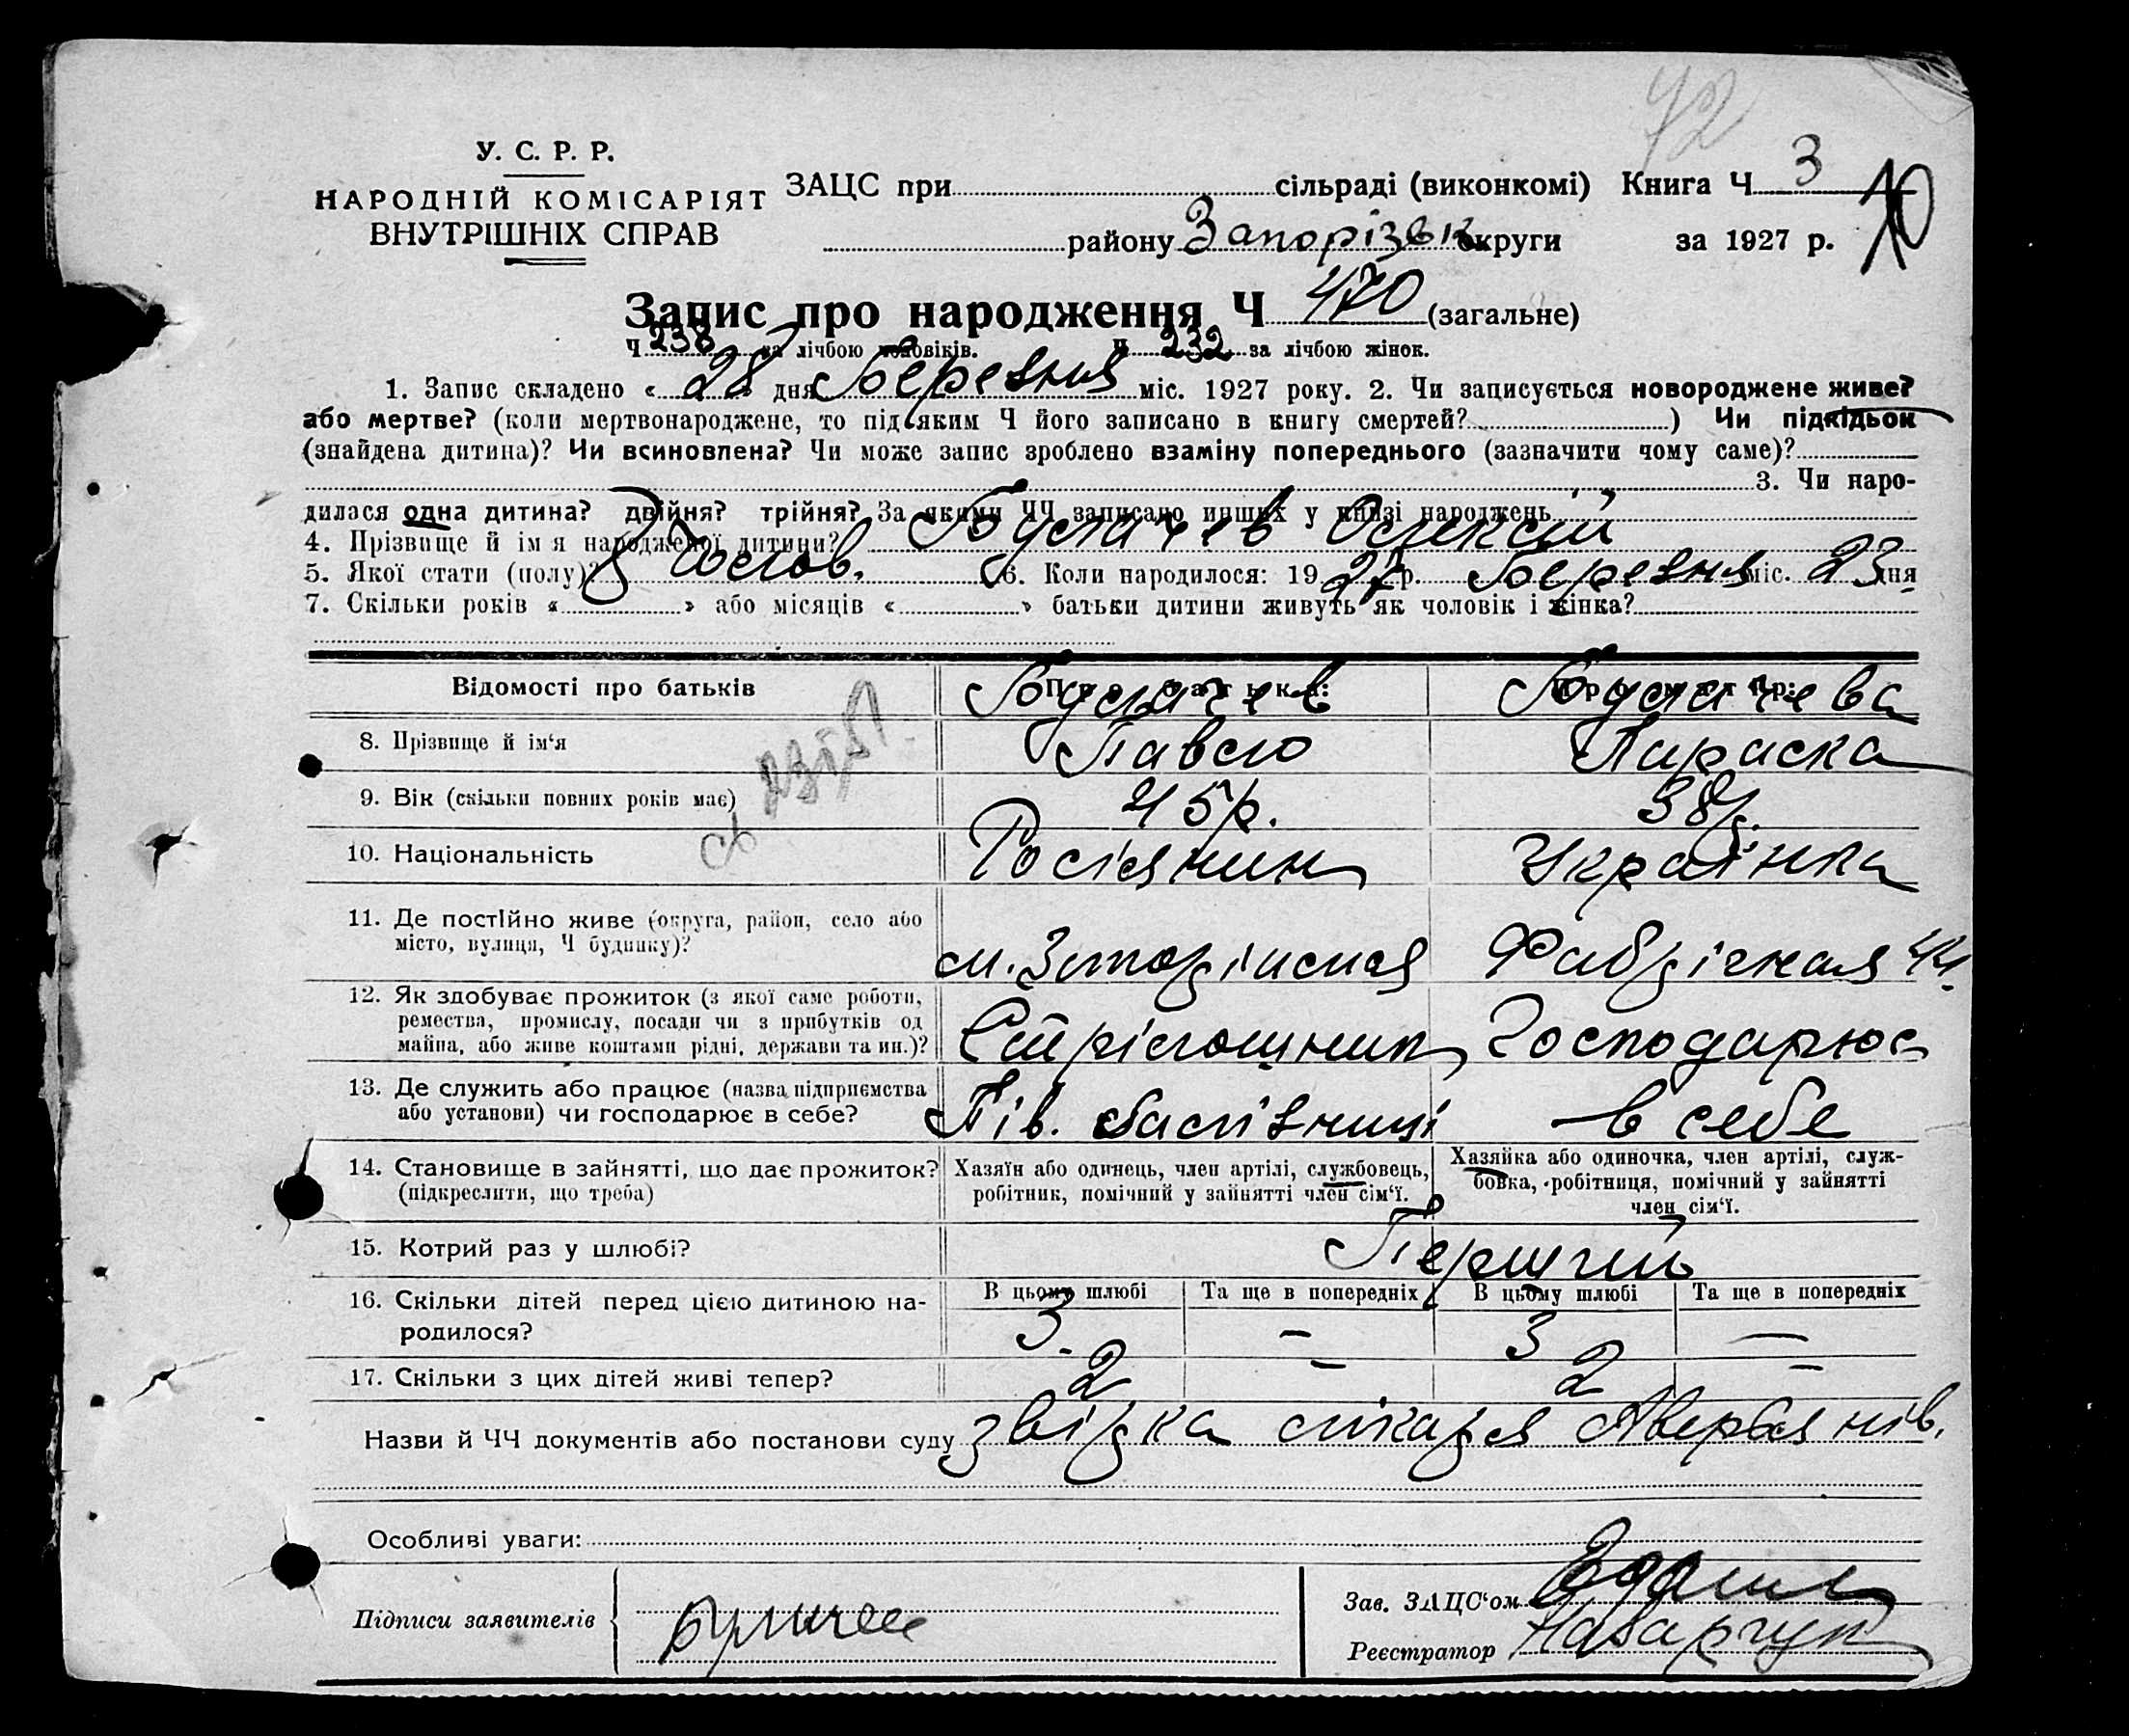 42
У. С. Р. Р.
НАРОДНІЙ КОМІСАРІЯТ
ВНУТРІШНІХ СПРАВ
ЗАЦС при сільраді (виконкомі) Книга Ч 3
10
району Запорізьк округи за 1927 р.
Запис про народження Ч 470 (загальне)
Ч 238 за лічбою чоловіків. Ч 232 за лічбою жінок.
1. Запис складено « 28 » дня Березня міс. 1927 року. 2. Чи записується новороджене живе?
або мертве? (коли мертвонароджене, то під яким Ч його записано в книгу смертей? ) Чи підкідьок
(знайдена дитина)? Чи всиновлена? Чи може запис зроблено взаміну попереднього (зазначити чому саме)?
3. Чи наро-
дилася одна дитина? двійня? трійня? За якими ЧЧ записано инших у книзі народжень
4. Прізвище й ім я народженої дитини? Булачев Олексій
5. Якої стати (полу)? Чолов. 6. Коли народилося: 1927 р. Березня міс. 23 дня
7. Скільки років « » або місяців « » батьки дитини живуть як чоловік і жінка?
Відомості про батьків
Про батька: Булачев
Про матір: Булачева
8. Прізвище й ім‘я Павло Параска
9. Вік (скільки повних років має) 45 р. 38 р.
10. Національність Росіянин Українка
11. Де постійно живе (округа, район, село або
місто, вулиця, Ч будинку)?
м. Запоріжжя Фабрічная 44
12. Як здобуває прожиток (з якої саме роботи,
ремества, промислу, посади чи з прибутків од
майна, або живе коштами рідні, держави та ин.)?
Стрілошник Господарює
13. Де служить або працює (назва підприємства
або установи) чи господарює в себе?
Пів. залізниці в себе
14. Становище в зайнятті, що дає прожиток?
(підкреслити, що треба)
Хазяїн або одинець, член артілі, службовець,
робітник, помічний у зайнятті член сім‘ї.
Хазяйка або одиночка, член артілі, служ-
бовка, робітниця, помічний у зайнятті
член сім‘ї.
15. Котрий раз у шлюбі? Перший
16. Скільки дітей перед цією дитиною на-
родилося?
В цьому шлюбі Та ще в попередніх В цьому шлюбі Та ще в попередніх
3 - 3 -
17. Скільки з цих дітей живі тепер? 2 - 2 -
Назви й ЧЧ документів або постанови суду звірка лікаря
Особливі уваги:
Підписи заявителів
Зав. ЗАЦС‘ом
Реєстратор